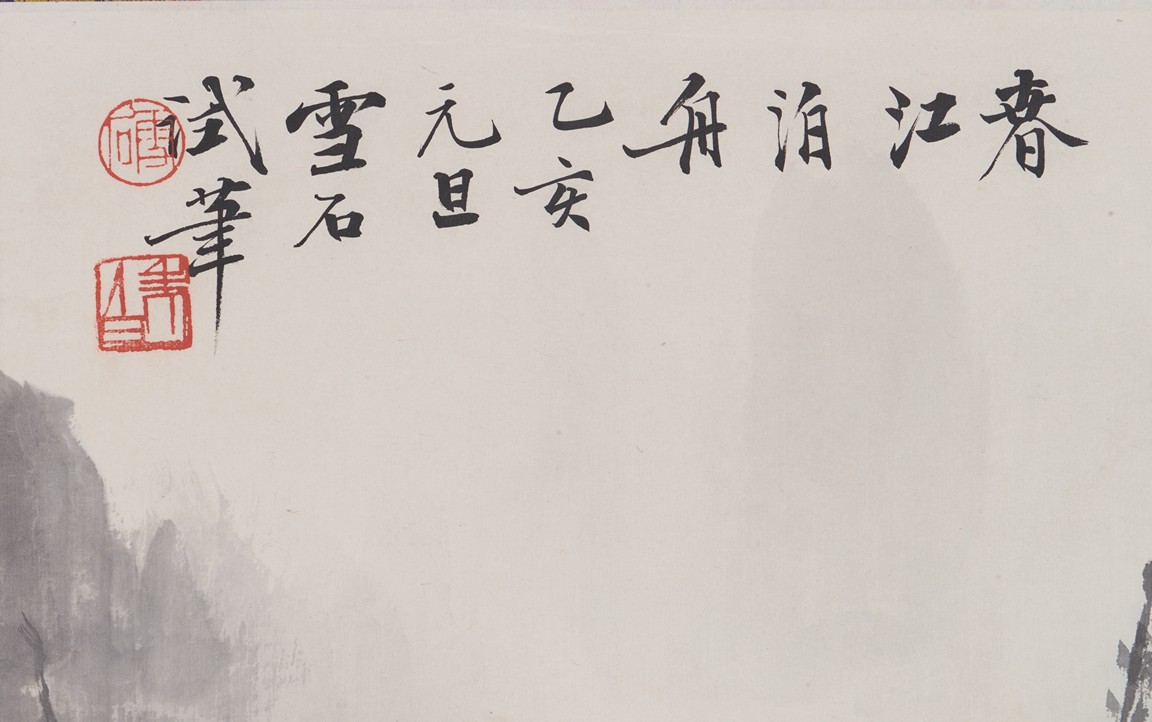 春
江
泊
舟
乙亥
元旦
雪石
試筆